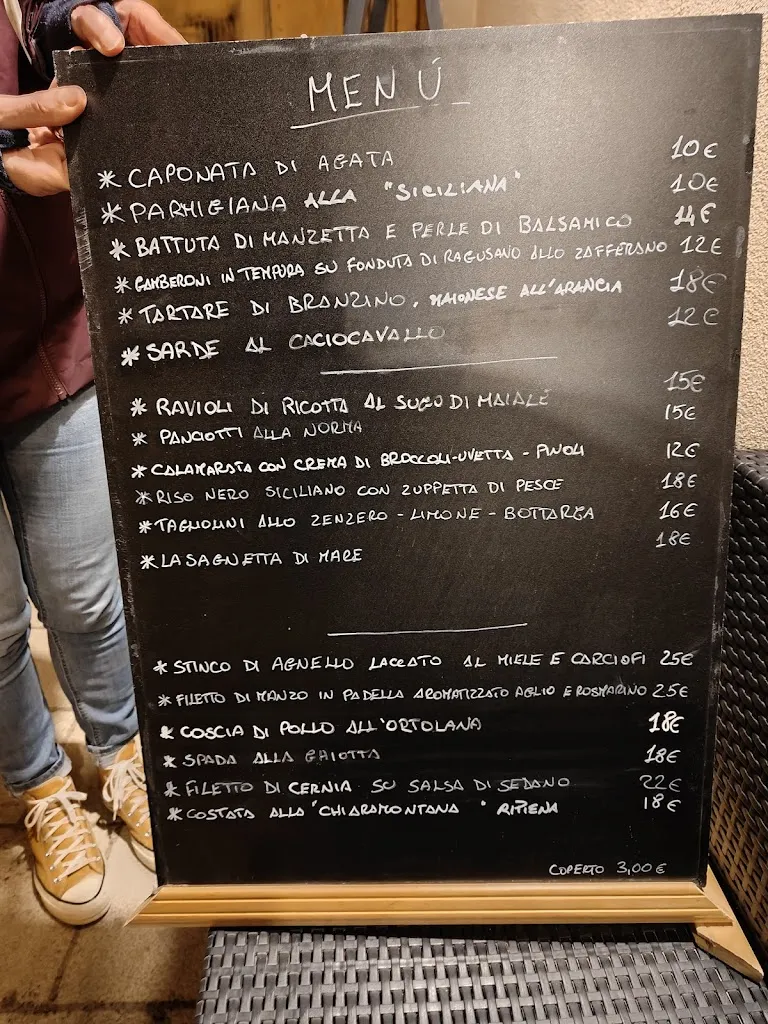 MENÚ
* CAPONATA DI AGATA 10€
* PARMIGIANA ALLA "SICILIANA" 10€
* BATTUTA DI MANZETTA E PERLE DI BALSAMICO 14€
* GAMBERONI IN TEMPURA SU FONDUTA DI RAGUSANO ALLO ZAFFERANO 12€
* TARTARE DI BRANZINO, MAIONESE ALL'ARANCIA 18€
* SARDE AL CACIOCAVALLO 12€
* RAVIOLI DI RICOTTA AL SUGO DI MAIALE 15€
* PANCIOTTI ALLA NORMA 15€
* CALAMARATA CON CREMA DI BROCCOLI-UVETTA - PINOLI 12€
* RISO NERO SICILIANO CON ZUPPETTA DI PESCE 18€
* TAGLIOLINI ALLO ZENZERO - LIMONE - BOTTARGA 16€
* LASAGNETTA DI MARE 18€
* STINCO DI AGNELLO LACCATO AL MIELE E CARCIOFI 25€
* FILETTO DI MANZO IN PADELLA AROMATIZZATO AGLIO E ROSMARINO 25€
* COSCIA DI POLLO ALL'ORTOLANA 18€
* SPADA ALLA GHIOTTA 18€
* FILETTO DI CERNIA SU SALSA DI SEDANO 22€
* COSTATA ALLA "CHIARAMONTANA" RIPIENA 18€
COPERTO 3,00€